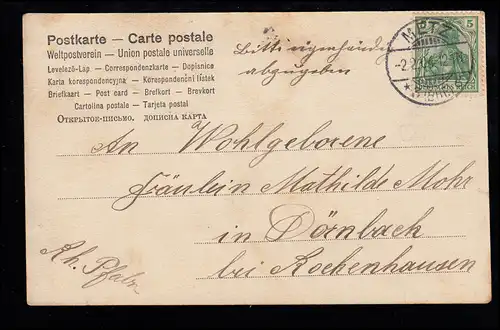 Postkarte – Carte postale
Weltpostverein – Union postale universelle
Levelező-Lap. – Correspondenzkarte – Dopisnice
Karta korespondencyjna – Korespondenční lístek
Briefkaart – Post card – Brefkort – Brevkort
Cartolina postale – Tarjeta postal
Открытое письмо. дописна карта
Bitte eigenhändig
abzugeben
METZ
5
An Wohlgeborene
Fräulein Mathilde Mohr
in Dörnbach
bei Rockenhausen
Rh. Pfalz